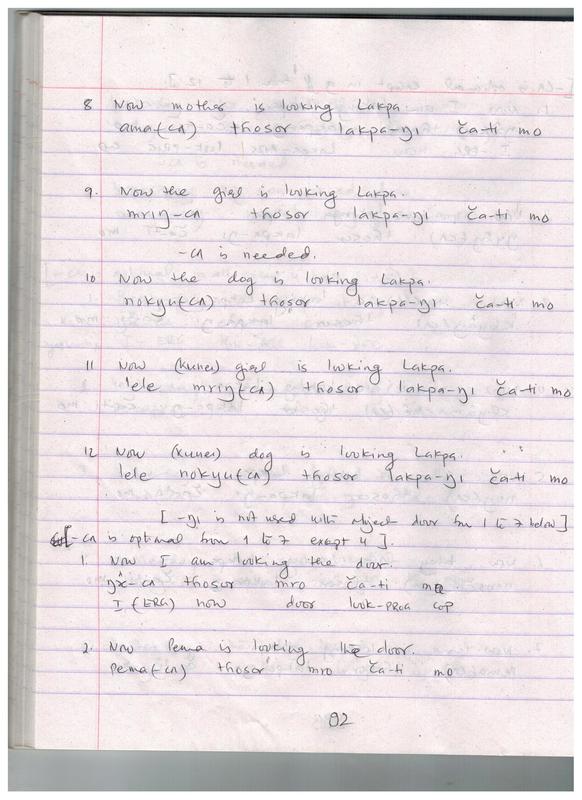 8 Now mother is looking Lakpa.
ama(-cʌ) thosor lakpa-ŋı ča-ti mo
9. Now the girl is looking Lakpa.
mriŋ-cʌ thosor lakpa-ŋı ča-ti mo
-cʌ is needed.
10 Now the dog is looking Lakpa.
nokyu(-cʌ) thosor lakpa-ŋı ča-ti mo
11 Now (kunes) girl is looking Lakpa.
lele mriŋ(-cʌ) thosor lakpa-ŋı ča-ti mo
12 Now (kunes) dog is looking Lakpa.
lele nokyu(-cʌ) thosor lakpa-ŋı ča-ti mo
[-ŋı is not used with object door from 1 to 7 below]
[-cʌ is optional from 1 to 7 except 4].
1. Now I am looking the door.
-cʌ thosor mro ča-ti
I (ERG) now door look-PROG COP
2. Now Pema is looking the door.
pema(-cʌ) thosor mro ča-ti mo
92